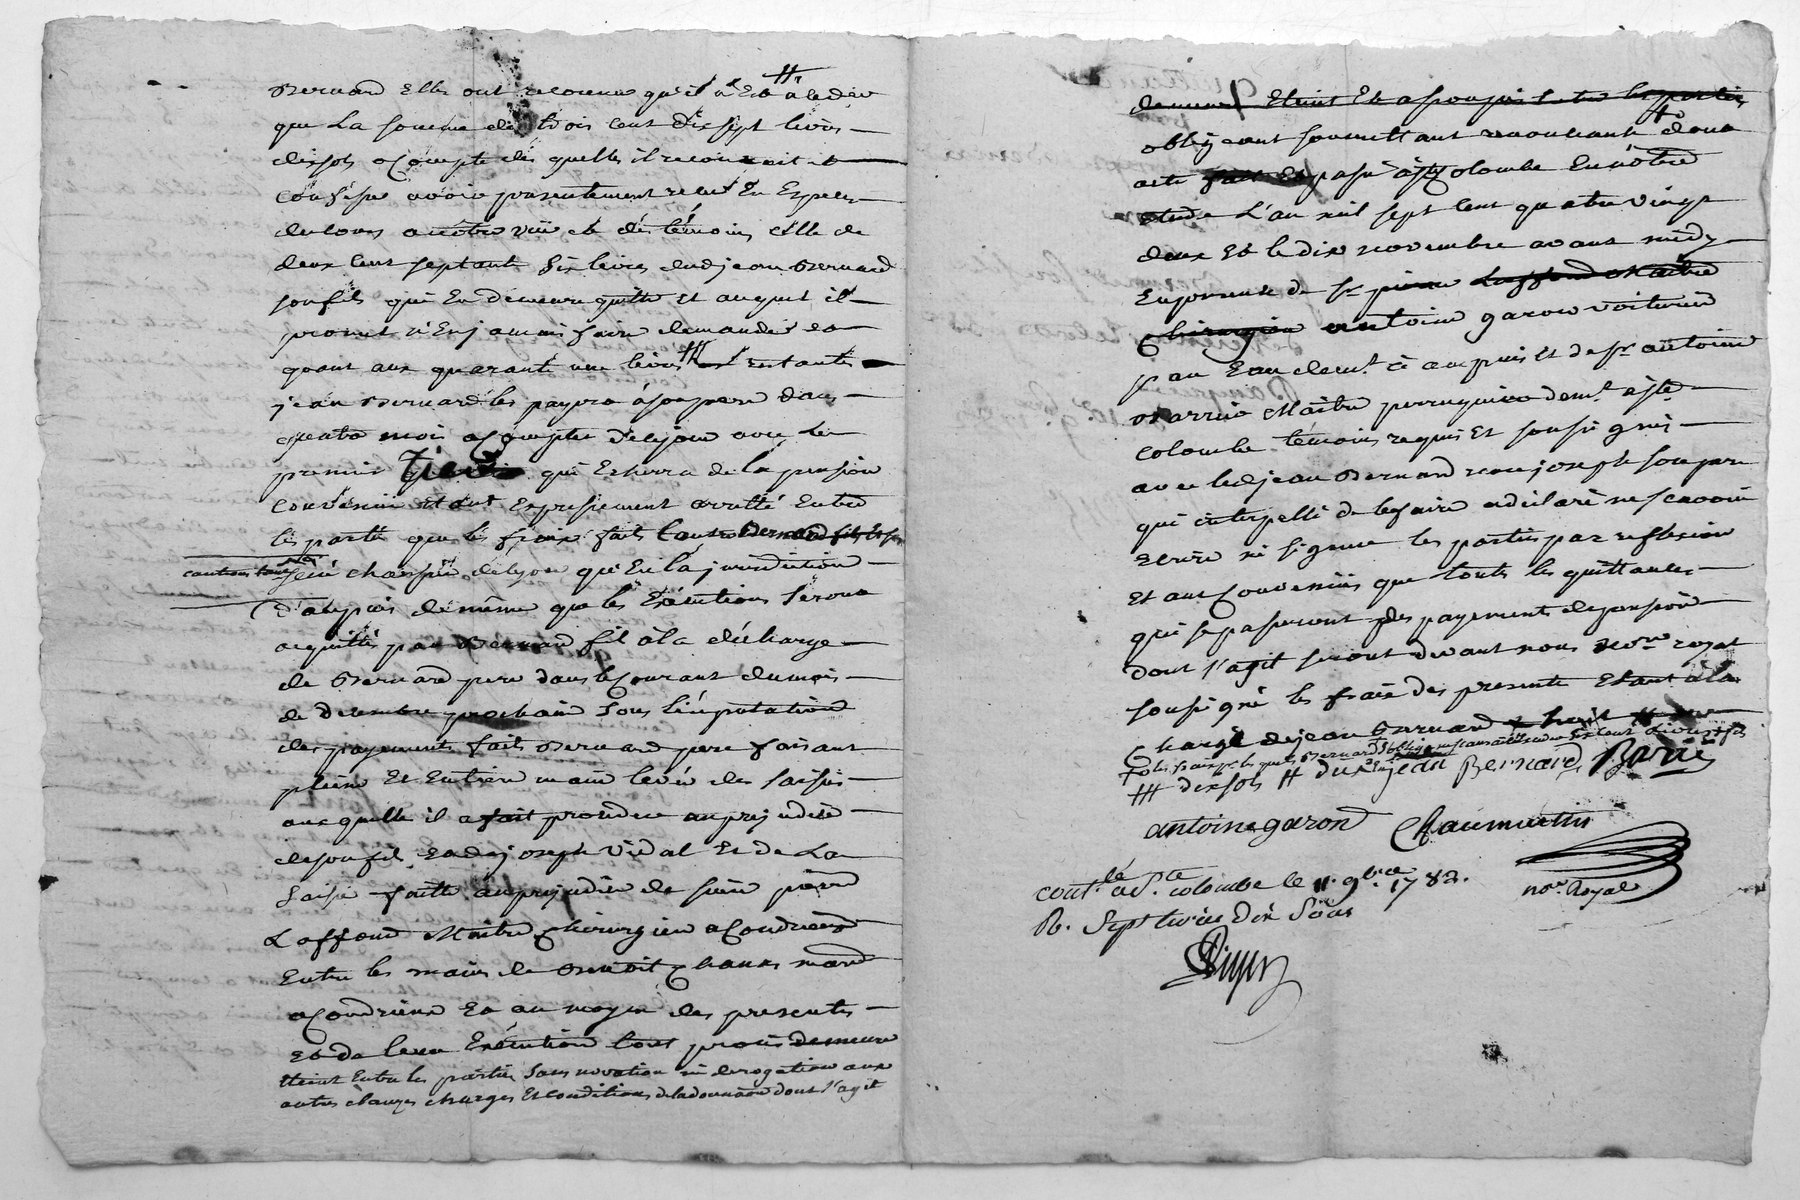 Bernard Elles ont reconnu qu'il n'Est # a lui deu
que La somme de trois cent dix sept livres
dix sols acompte des quelles il reconnoit et
confesse avoir presentement receu En Especes
de cours a notre vüe et des témoins celle de
deux cent septante six livres dud jean Bernard
son fils qui En demeure quitte et auquel il
promet n'En jamais faire demander et
quant aux quarante une livres ## restantes
jean Bernard les payera à son pere dans
quatre mois a Compter de ce jour avec le
premier qui Echerra de la pension
convenüe Etant Expressement arretté Entre
les parties que les fraix faits
cautions tant En la senechaussée de lyon qu'En la jurisdiction
d'ampuis de même que les Exécutions seront
acquittés par Bernard fils à la décharge
de Bernard pere dans le Courant du mois
de decembre prochain sous l'imputation
des payements faits Bernard pere faisant
pleine Et Entiere main levée des saisies
aux quelles il a fait proceder au prejudice
de son fils Ez mains de joseph Vidal Et de La
saisie faitte au prejudice de sieur pierre
Laffond Maitre Chirurgien a Condrieux
Entre les mains de Benoit
a Condrieux Et au moyen des presentes
Et de leur Exécution tout procès demeure
Eteint Entre les parties sans novation ni derogation aux
autres clauzes charges Et conditions de la donnation dont s'agit
demeure Eteint Et assoupis Entre les parties
obligeant soumettant renonceant # dont
acte fait Et passé à Ste Colombe En notre
etude L'an mil sept cent quatre vingt
deux Et le dix novembre avant midy
En presence de sr pierre Laffond Maitre
Chirurgien antoine garon voiturier
par Eau demt à ampuis Et de sr antoine
Barrie Maître perruquier demt a ste
Colombe témoins requis Et soussignés
avec led jean Bernard non joseph son pere
qui interpellé de le faire a déclaré ne scavoir
Ecrire ni signer les parties par reflexion
Et ont Convenües que touts les quittances
qui se passeront des payements de pension
dont s'agit seront devant nous nore royal
soussigné les frais des presentes Etant à la
Charge de jean Bernard
### dix sols ## jean Bernard Barrié
antoine garon Chaumartin
nore Royal
contlé a Ste colombe le 11. 9bre 1782.
R. Sept livres dix Sous